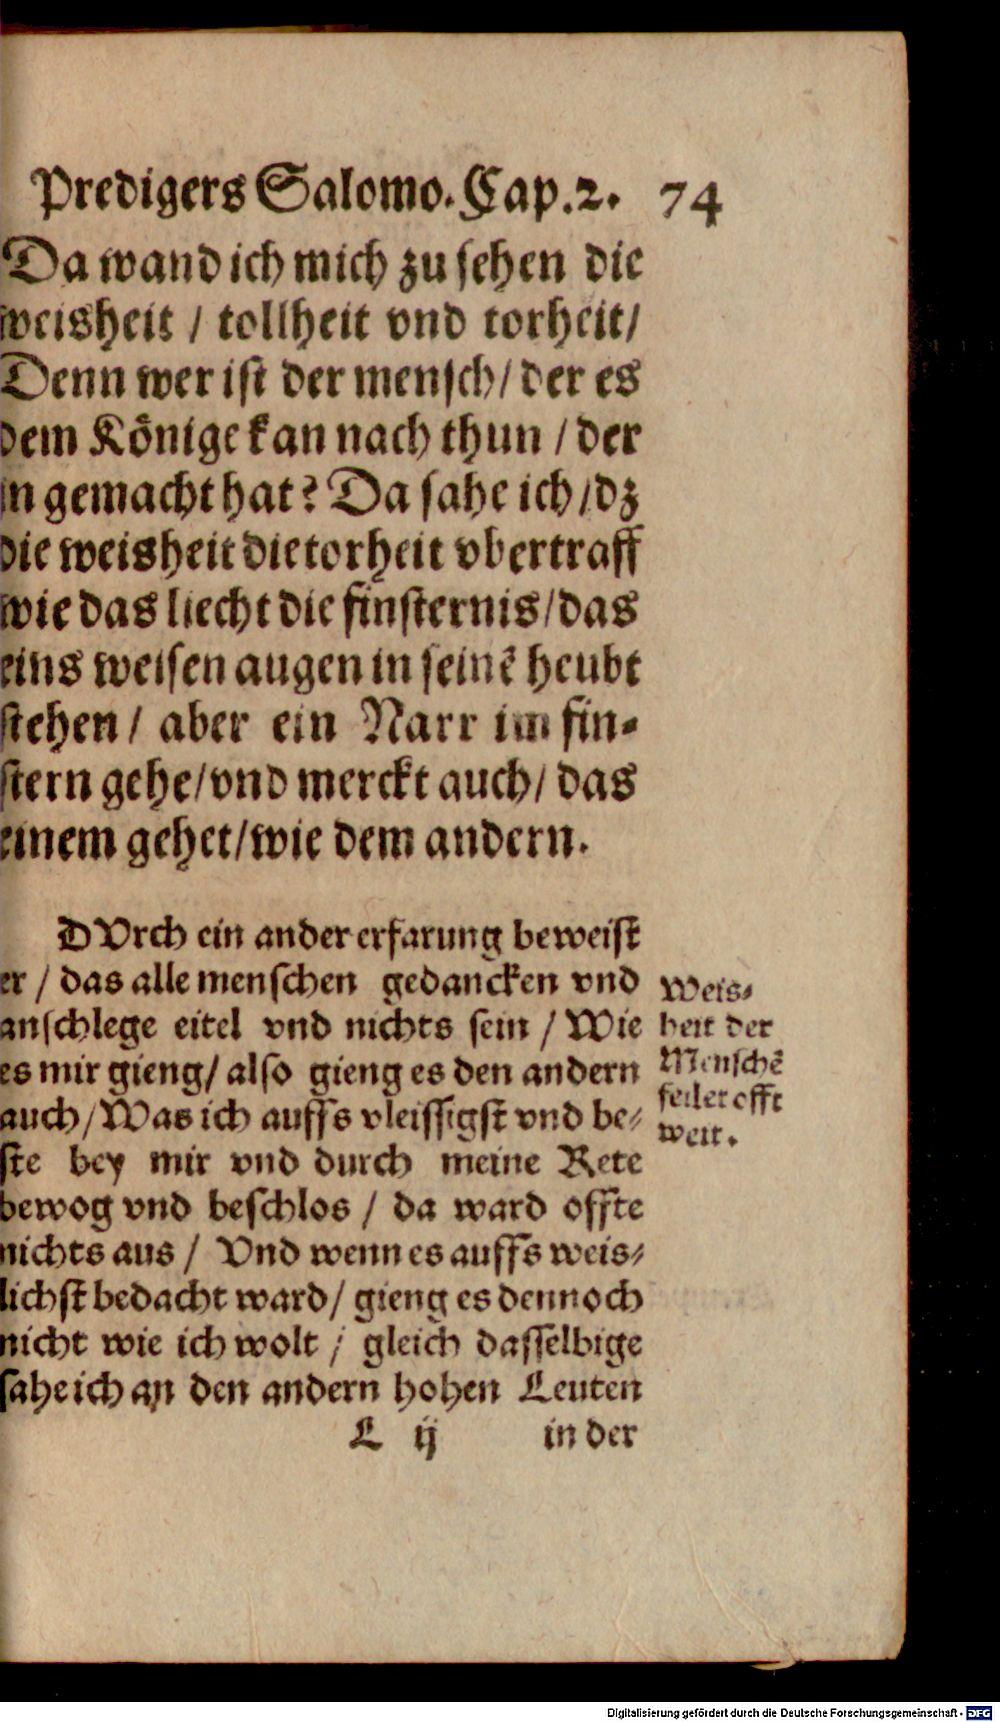 Predigers Salomo. Cap.2. 74
Da wand ich mich zu sehen die
weisheit / tollheit vnd torheit/
Denn wer ist der mensch/ der es
dem Könige kan nach thun / der
in gemacht hat? Da sahe ich/dz
die weisheit die torheit vbertraff
wie das liecht die finsternis/das
eins weisen augen in seinē heubt
stehen / aber ein Narr im fin-
stern gehe/vnd merckt auch/ das
einem gehet/wie dem andern.
DVrch ein ander erfarung beweist
er / das alle menschen gedancken vnd
anschlege eitel vnd nichts sein / Wie
es mir gieng/ also gieng es den andern
auch/Was ich auffs vleissigst vnd be-
ste bey mir vnd durch meine Rete
bewog vnd beschlos / da ward offte
nichts aus / Vnd wenn es auffs weis-
lichst bedacht ward/ gieng es dennoch
nicht wie ich wolt / gleich dasselbige
sahe ich an den andern hohen Leuten
L ij in der
Weis-
heit der
Menschē
feilet offt
weit.
Digitalisierung gefördert durch die Deutsche Forschungsgemeinschaft - DFG